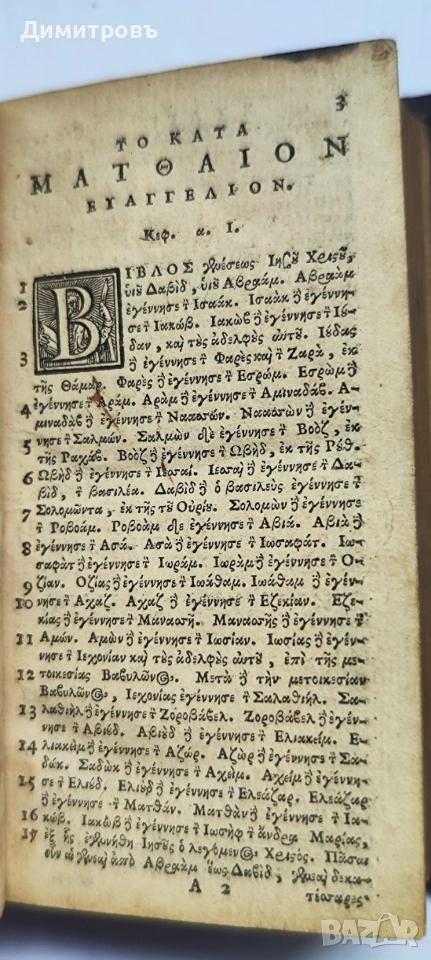 Димитровъ
3
ΤΟ ΚΑΤΑ
ΜΑΤΘΑΙΟΝ
ΕΥΑΓΓΕΛΙΟΝ.
Κεφ. α. Ι.
1 ΒΙΒΛΟΣ γενέσεως Ἰησοῦ Χριστοῦ,
2 υἱοῦ Δαβὶδ, υἱοῦ Αβραάμ. Αβραὰμ
ἐγέννησε τ Ισαάκ. Ισαὰκ ἢ ἐγέννη-
σε τ Ιακώβ. Ιακὼβ ἢ ἐγέννησε τ Ιού-
3 δαν, καὶ τοὺς ἀδελφοὺς αὐτοῦ. Ιούδας
ἢ ἐγέννησε τ Φαρὲς καὶ τ Ζαρὰ, ἐκ
τῆς Θάμαρ. Φαρὲς ἢ ἐγέννησε τ Εσρώμ. Εσρὼμ ἢ
4 ἐγέννησε τ Αράμ. Αρὰμ ἢ ἐγέννησε τ Αμιναδάβ. Α-
μιναδὰβ ἢ ἐγέννησε τ Ναασσών. Ναασσὼν ἢ ἐγέν-
5 νησε τ Σαλμών. Σαλμὼν δὲ ἐγέννησε τ Βοὸζ, ἐκ
τῆς Ραχάβ. Βοὸζ ἢ ἐγέννησε τ Ωβὴδ, ἐκ τῆς Ρούθ.
6 Ωβὴδ ἢ ἐγέννησε τ Ιεσσαί. Ιεσσαὶ ἢ ἐγέννησε τ Δα-
βὶδ, τ βασιλέα. Δαβὶδ ἢ ὁ βασιλεὺς ἐγέννησε τ
7 Σολομῶντα, ἐκ τῆς τοῦ Οὐρίου. Σολομὼν ἢ ἐγέννησε
τ Ροβοάμ. Ροβοὰμ δὲ ἐγέννησε τ Αβιά. Αβιὰ ἢ
8 ἐγέννησε τ Ασά. Ασὰ ἢ ἐγέννησε τ Ιωσαφάτ. Ιω-
σαφὰτ ἢ ἐγέννησε τ Ιωράμ. Ιωρὰμ ἢ ἐγέννησε τ Ο-
9 ζίαν. Οζίας ἢ ἐγέννησε τ Ιωάθαμ. Ιωάθαμ ἢ ἐγέν-
10 νησε τ Αχαζ. Αχαζ ἢ ἐγέννησε τ Εζεκίαν. Εζε-
κίας ἢ ἐγέννησε τ Μανασσῆ. Μανασσῆς ἢ ἐγέννησε τ
11 Αμών. Αμὼν ἢ ἐγέννησε τ Ιωσίαν. Ιωσίας ἢ ἐγέννη-
σε τ Ιεχονίαν καὶ τοὺς ἀδελφοὺς αὐτοῦ, ἐπὶ τῆς με-
12 τοικεσίας Βαβυλῶνος. Μετὰ ἢ τὴν μετοικεσίαν
Βαβυλῶνος, Ιεχονίας ἐγέννησε τ Σαλαθιήλ. Σα-
13 λαθιὴλ ἢ ἐγέννησε τ Ζοροβάβελ. Ζοροβάβελ ἢ ἐγέν-
νησε τ Αβιούδ. Αβιοὺδ ἢ ἐγέννησε τ Ελιακείμ. Ε-
14 λιακεὶμ ἢ ἐγέννησε τ Αζώρ. Αζὼρ ἢ ἐγέννησε τ Σα-
δώκ. Σαδὼκ ἢ ἐγέννησε τ Αχείμ. Αχεὶμ ἢ ἐγέννη-
15 σε τ Ελιούδ. Ελιοὺδ ἢ ἐγέννησε τ Ελεάζαρ. Ελεάζαρ
ἢ ἐγέννησε τ Ματθάν. Ματθὰν ἢ ἐγέννησε τ Ια-
16 κώβ. Ιακὼβ ἢ ἐγέννησε τ Ιωσὴφ τ ἄνδρα Μαρίας,
17 ἐξ ἧς ἐγεννήθη Ιησοῦς ὁ λεγόμενος Χριστός. Πᾶσαι
οὖν αἱ γενεαὶ ἀπὸ Αβραὰμ ἕως Δαβὶδ, γενεαὶ δεκα-
Α 2
τέσσαρες·
BAZAR